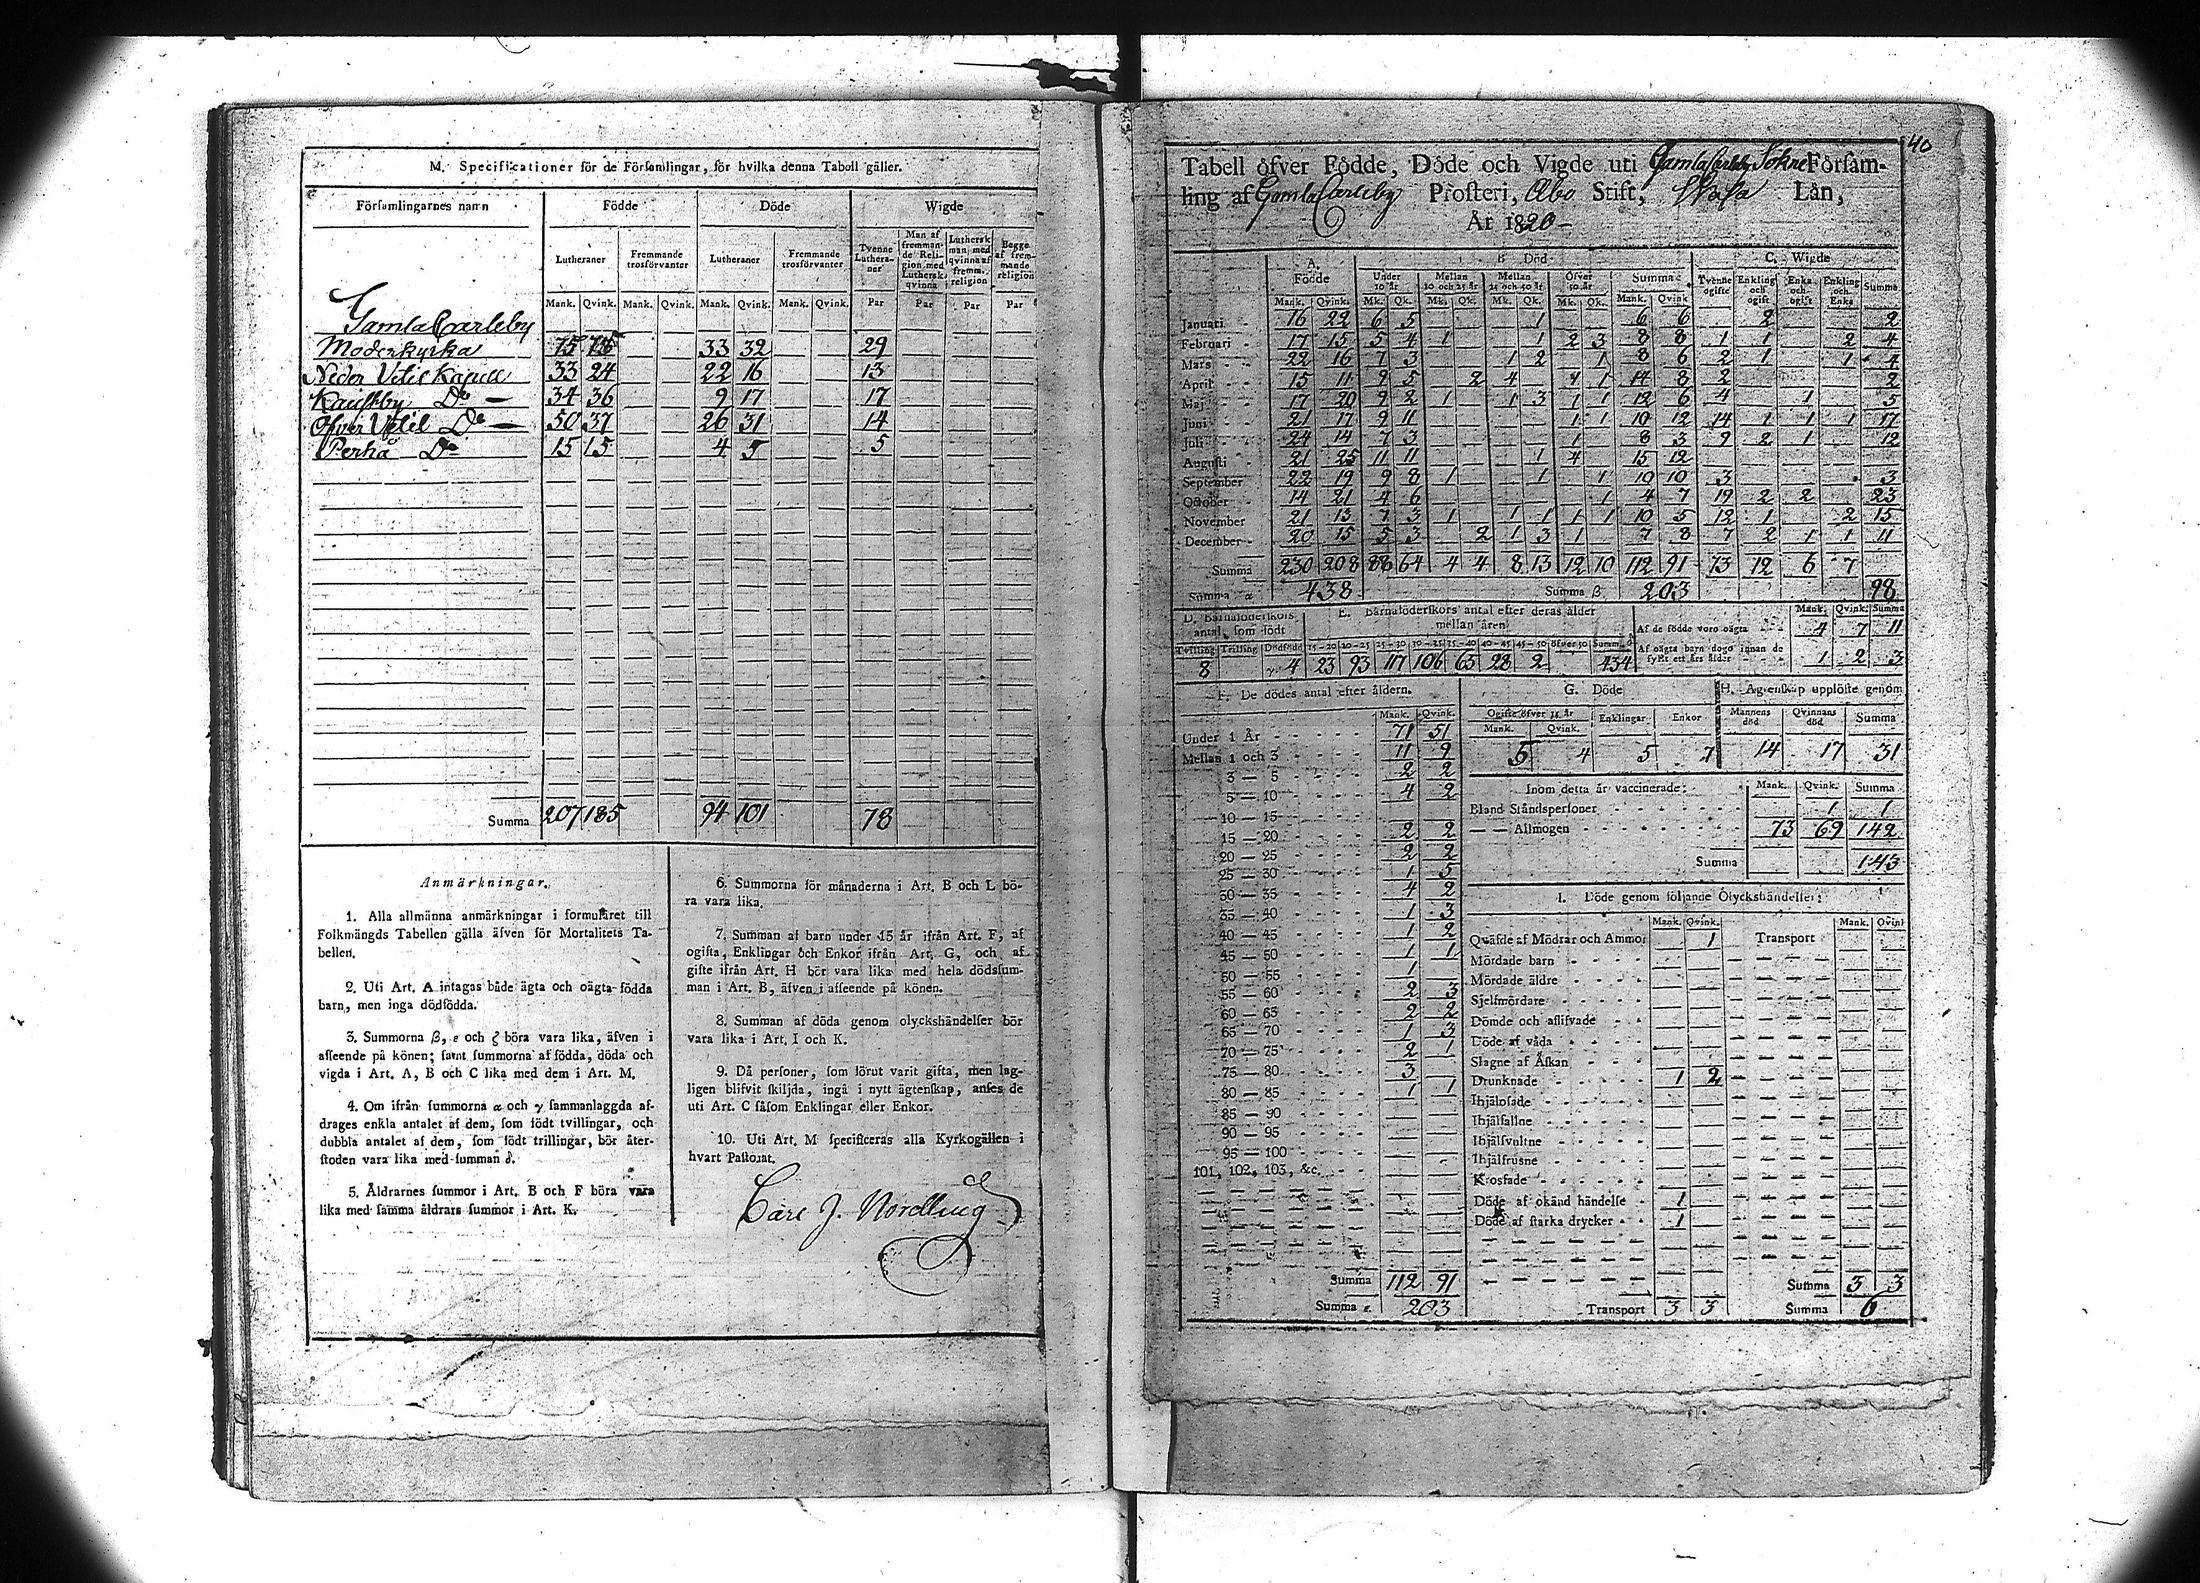 M. Specificationer för de Församlingar, för hvilka denna Tabell gäller.
Församlingarnes namn Födde Döde Wigde
Lutheraner Fremmande trosförvanter Lutheraner Fremmande trosförvanter Tvenne Lutheraner Man af fremmande Religion med Luthersk qvinna Luthersk man med qvinna af fremm. religion Begge af fremmande religion
Mank. Qvink. Mank. Qvink. Mank. Qvink. Mank. Qvink. Par Par Par Par
Gamla Carleby
Moderkyrka 75 73 33 32 29
Neder Vetil Kapell 33 24 22 16 13
Kaustby Do 34 36 9 17 17
Öfver Vetil Do 50 37 26 31 14
Perho Do 15 15 4 5 5
Summa 207 185 94 101 78
Anmärkningar.
1. Alla allmänna anmärkningar i formuläret till
Folkmängds Tabellen gälla äfven för Mortalitets Ta-
bellen.
2. Uti Art. A intagas både ägta och oägta födda
barn, men inga dödfödda.
3. Summorna β, ε och ζ böra vara lika, äfven i
afseende på könen; samt summorna af födda, döda och
vigda i Art. A, B och C lika med dem i Art. M.
4. Om ifrån summorna α och γ sammanlaggda af-
drages enkla antalet af dem, som födt tvillingar, och
dubbla antalet af dem, som födt trillingar, bör åter-
stoden vara lika med summan δ.
5. Åldrarnes summor i Art. B och F böra vara
lika med samma åldrars summor i Art. K.
6. Summorna för månaderna i Art. B och L bö-
ra vara lika.
7. Summan af barn under 15 år ifrån Art. F, af
ogifta, Enklingar och Enkor ifrån Art. G, och af
gifte ifrån Art. H bör vara lika med hela dödssum-
man i Art. B, äfven i afseende på könen.
8. Summan af döda genom olyckshändelser bör
vara lika i Art. I och K.
9. Då personer, som förut varit gifta, men lag-
ligen blifvit skiljda, ingå i nytt ägtenskap, anses de
uti Art. C såsom Enklingar eller Enkor.
10. Uti Art. M specificeras alla Kyrkogällen i
hvart Pastorat.
Carl J. Nordling
40
Tabell öfver Födde, Döde och Vigde uti Gamla Carleby Sokne Församling
af Gamla Carleby Prosteri, Åbo Stift, Wasa Län,
År 1820
A. Födde B. Död C. Wigde
Under 10 år Mellan 10 och 25 år Mellan 25 och 50 år Öfver 50 år Summa Tvenne ogifte Enkling och ogift Enka och ogift Enkling och Enka Summa
Mank. Qvink. Mk. Qk. Mk. Qk. Mk. Qk. Mk. Qk. Mank. Qvink
Januari 16 22 6 5 1 6 6 2 2
Februari 17 15 5 4 1 1 2 3 8 8 1 1 2 4
Mars 22 16 7 3 1 2 1 8 6 2 1 1 4
April 15 11 9 5 2 4 1 1 14 8 2 2
Maj 17 20 9 2 1 1 3 1 1 12 6 4 1 5
Juni 21 17 9 11 1 1 10 12 14 1 1 1 17
Juli 24 14 7 3 1 8 3 9 2 1 12
Augusti 21 25 11 11 1 4 15 12
September 22 19 9 8 1 1 1 10 10 3 3
October 14 21 4 6 1 4 7 19 2 2 23
November 21 13 7 3 1 1 1 1 1 10 5 12 1 2 15
December 20 15 5 3 2 1 3 1 7 8 7 2 1 1 11
Summa 230 208 88 64 4 4 8 13 12 10 112 91 73 12 6 7
Summa α 438 Summa β 203 98
D. Barnaföderskors antal, som födt
Tvilling Trilling Dödfödd
8 γ. 4
E. Barnaföderskors antal efter deras ålder mellan åren
15-20 20-25 25-30 30-35 35-40 40-45 45-50 öfver 50 Summa δ
23 93 117 106 65 28 2 434
Mank. Qvink. Summa
Af de födde voro oägta 4 7 11
Af oägta barn dogo innan de fyllt ett års ålder 1 2 3
F. De dödes antal efter åldern.
Mank. Qvink.
Under 1 År 71 51
Mellan 1 och 3 11 9
3 — 5 2 2
5 — 10 4 2
10 — 15
15 — 20 2 2
20 — 25 2 2
25 — 30 1 5
30 — 35 4 2
35 — 40 1 3
40 — 45 1 2
45 — 50 1 1
50 — 55 1
55 — 60 2 3
60 — 65 2 2
65 — 70 1 3
70 — 75 2 1
75 — 80 3
80 — 85 1 1
85 — 90
90 — 95
95 — 100
101, 102, 103, &c.
Summa 112 91
Summa ε. 203
G. Döde
Ogifte öfver 15 år Enklingar Enkor
Mank. Qvink.
5 4 5 7
H. Ägtenskap upplöste genom
Mannens död Qvinnans död Summa
14 17 31
Inom detta år vaccinerade: Mank. Qvink. Summa
Bland Ståndspersoner 1 1
— — Allmogen 73 69 142
Summa 143
I. Döde genom följande Olyckshändelser:
Mank. Qvink. Mank. Qvink
Qväfde af Mödrar och Ammor 1 Transport
Mördade barn
Mördade äldre
Sjelfmördare
Dömde och aflifvade
Döde af våda
Slagne af Åskan
Drunknade 1 2
Ihjälosade
Ihjälfallne
Ihjälsvultne
Ihjälfrusne
Krossade
Döde af okänd händelse 1
Döde af starka drycker 1
Summa 3 3
Transport 3 3 Summa 6